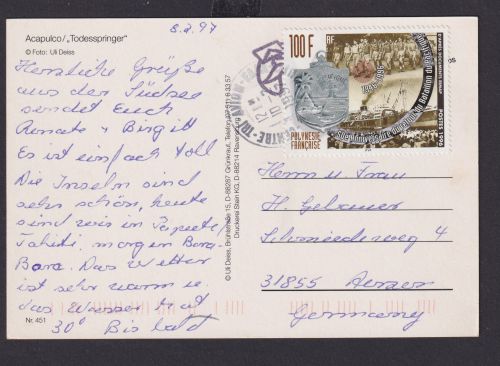 8.2.97
Acapulco/„Todesspringer"
© Foto: Uli Deiss
Herzliche Grüße
aus der Südsee
sendet Euch
Renate + Birgitt
Es ist einfach toll
Die Inseln sind
sehr schön, heute
sind wir in Papeete/
Tahiti, morgen Bora-
Bora. Das Wetter
ist sehr warm u.
das Wasser hat
30° Bis bald
Nr. 451
© Uli Deiss, Brühlstraße 15, D-88287 Grünkraut, Telefon (07 51) 6 33 57
Druckerei Stein KG, D-88214 Ravensburg
100 F
RF
POLYNÉSIE
FRANÇAISE
POSTES 1996
Herrn u. Frau
H.
Schmiedeweg 4
31855 Aerzen
Germany